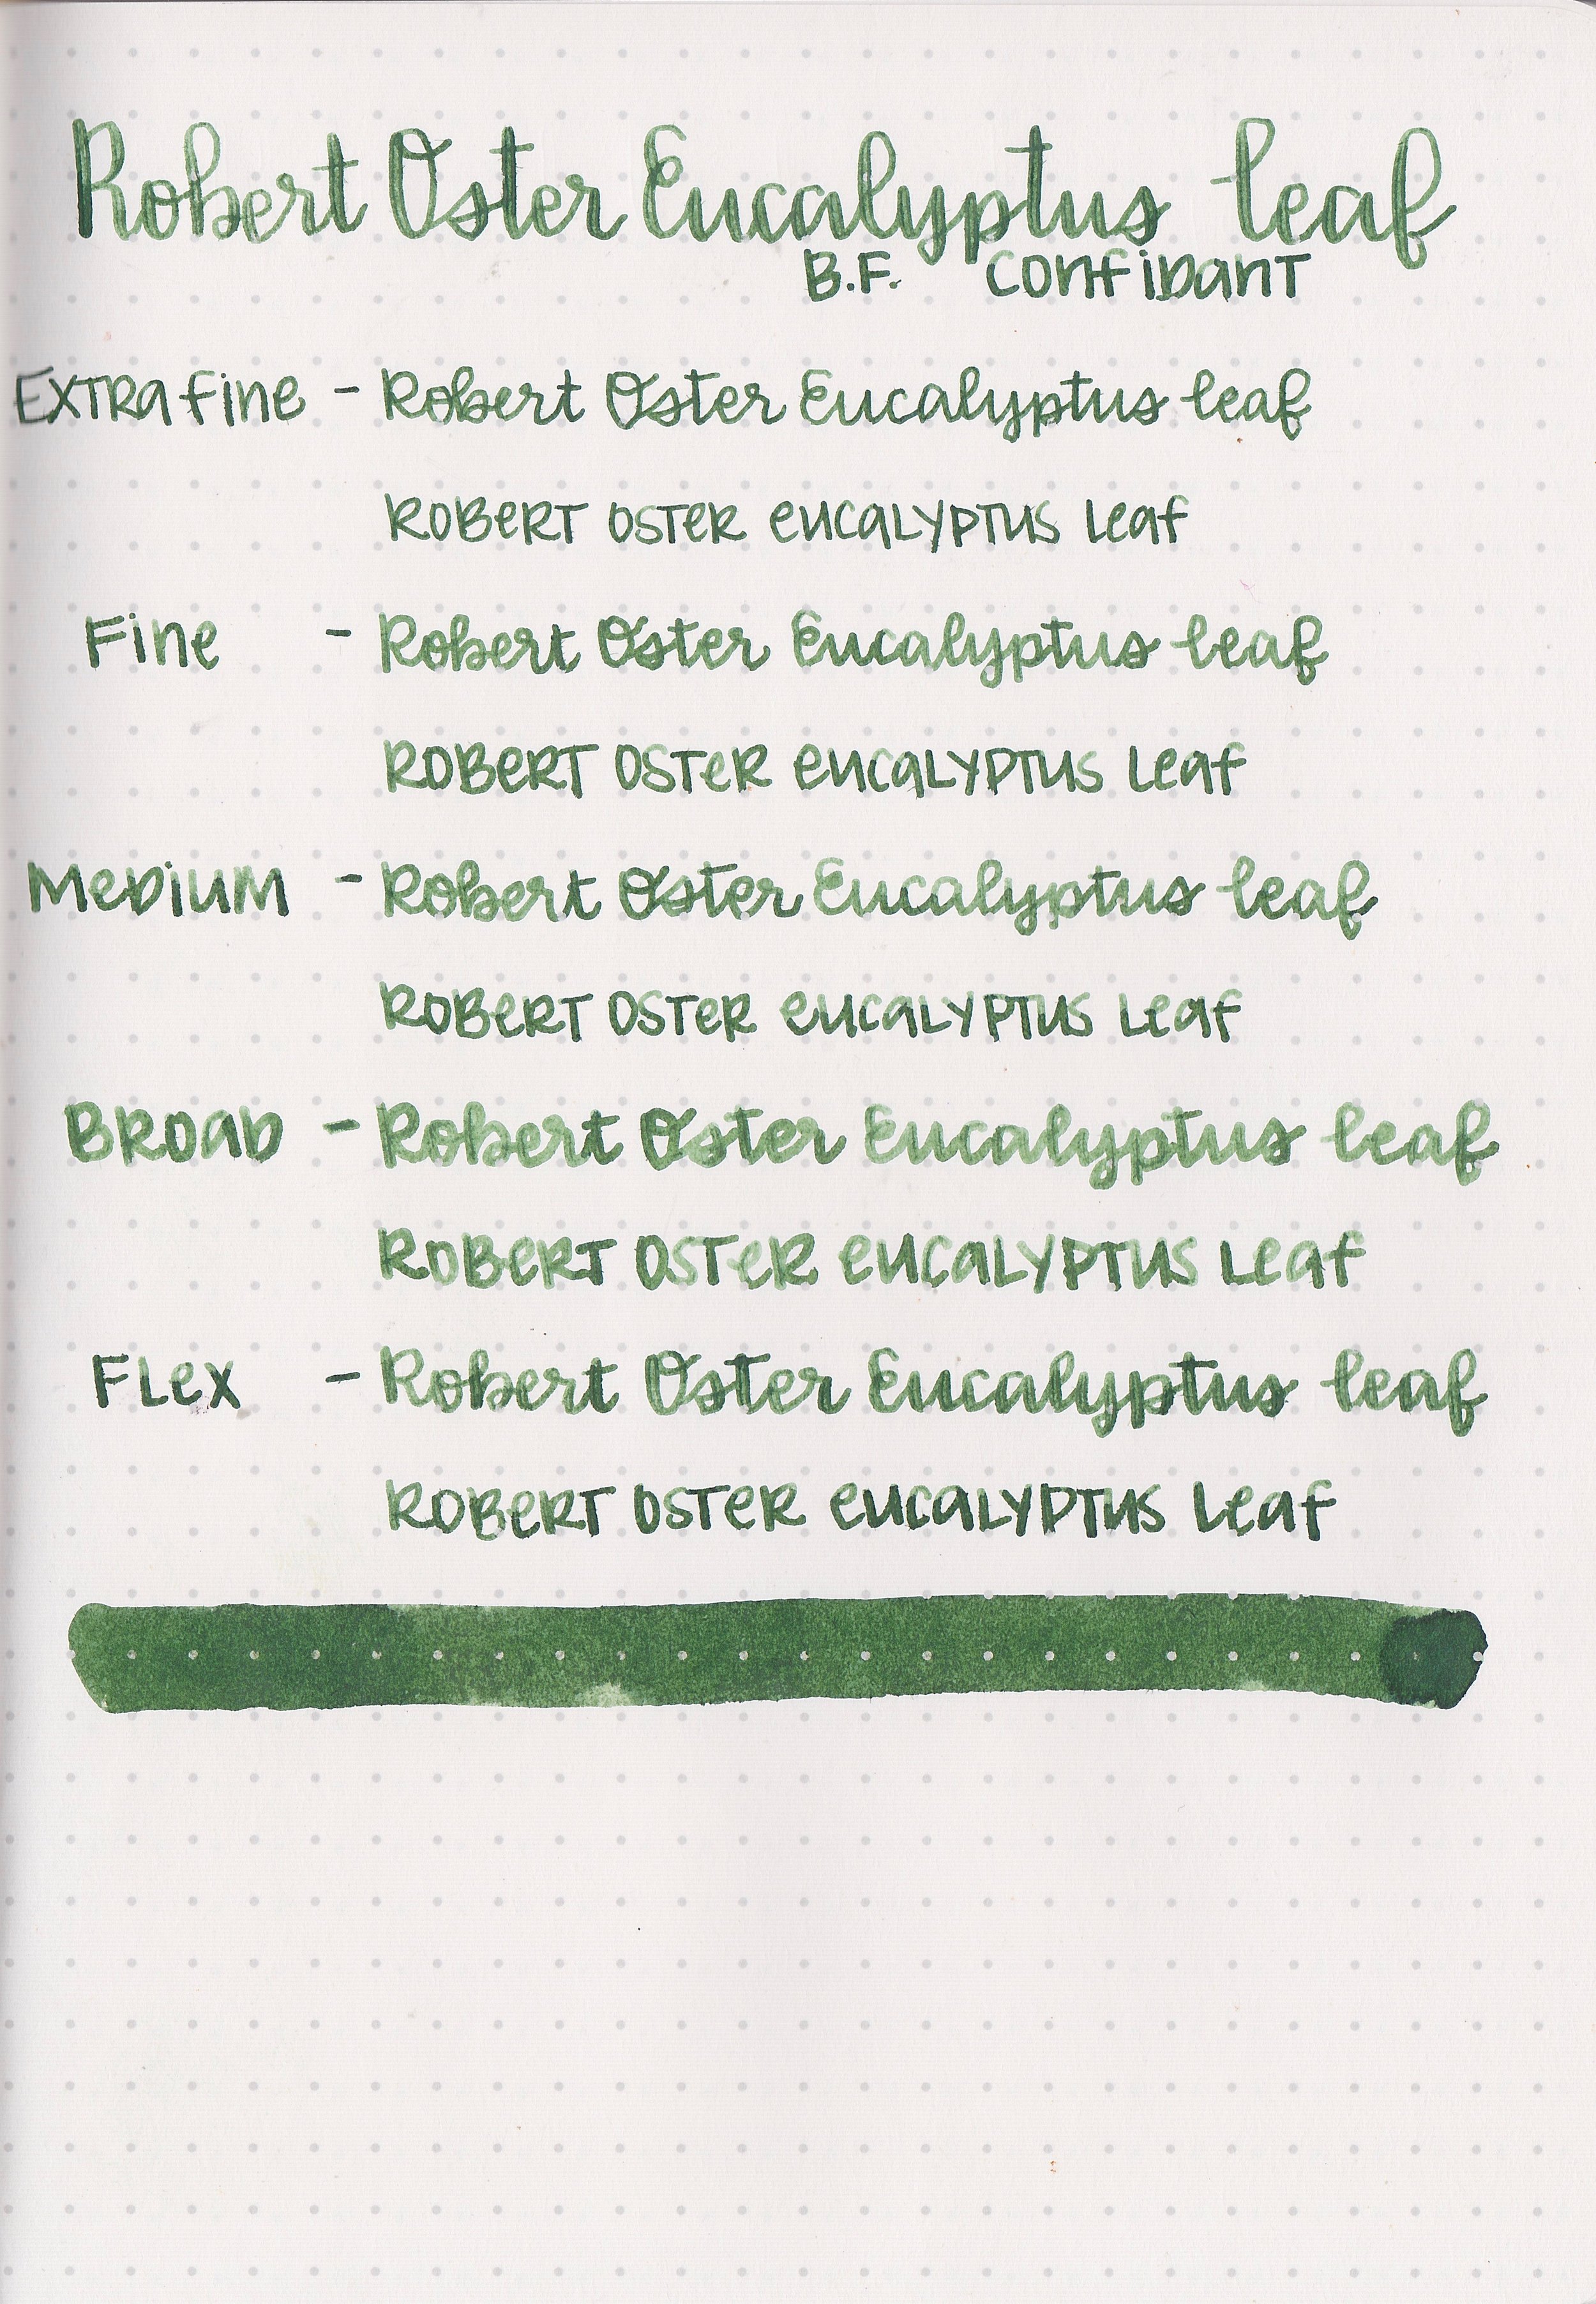 Robert Oster Eucalyptus leaf
B.F. Confidant
Extra fine - Robert Oster Eucalyptus leaf
Robert Oster Eucalyptus Leaf
Fine - Robert Oster Eucalyptus leaf
Robert Oster Eucalyptus Leaf
Medium - Robert Oster Eucalyptus leaf
Robert Oster Eucalyptus Leaf
Broad - Robert Oster Eucalyptus leaf
Robert Oster Eucalyptus Leaf
Flex - Robert Oster Eucalyptus leaf
Robert Oster Eucalyptus Leaf